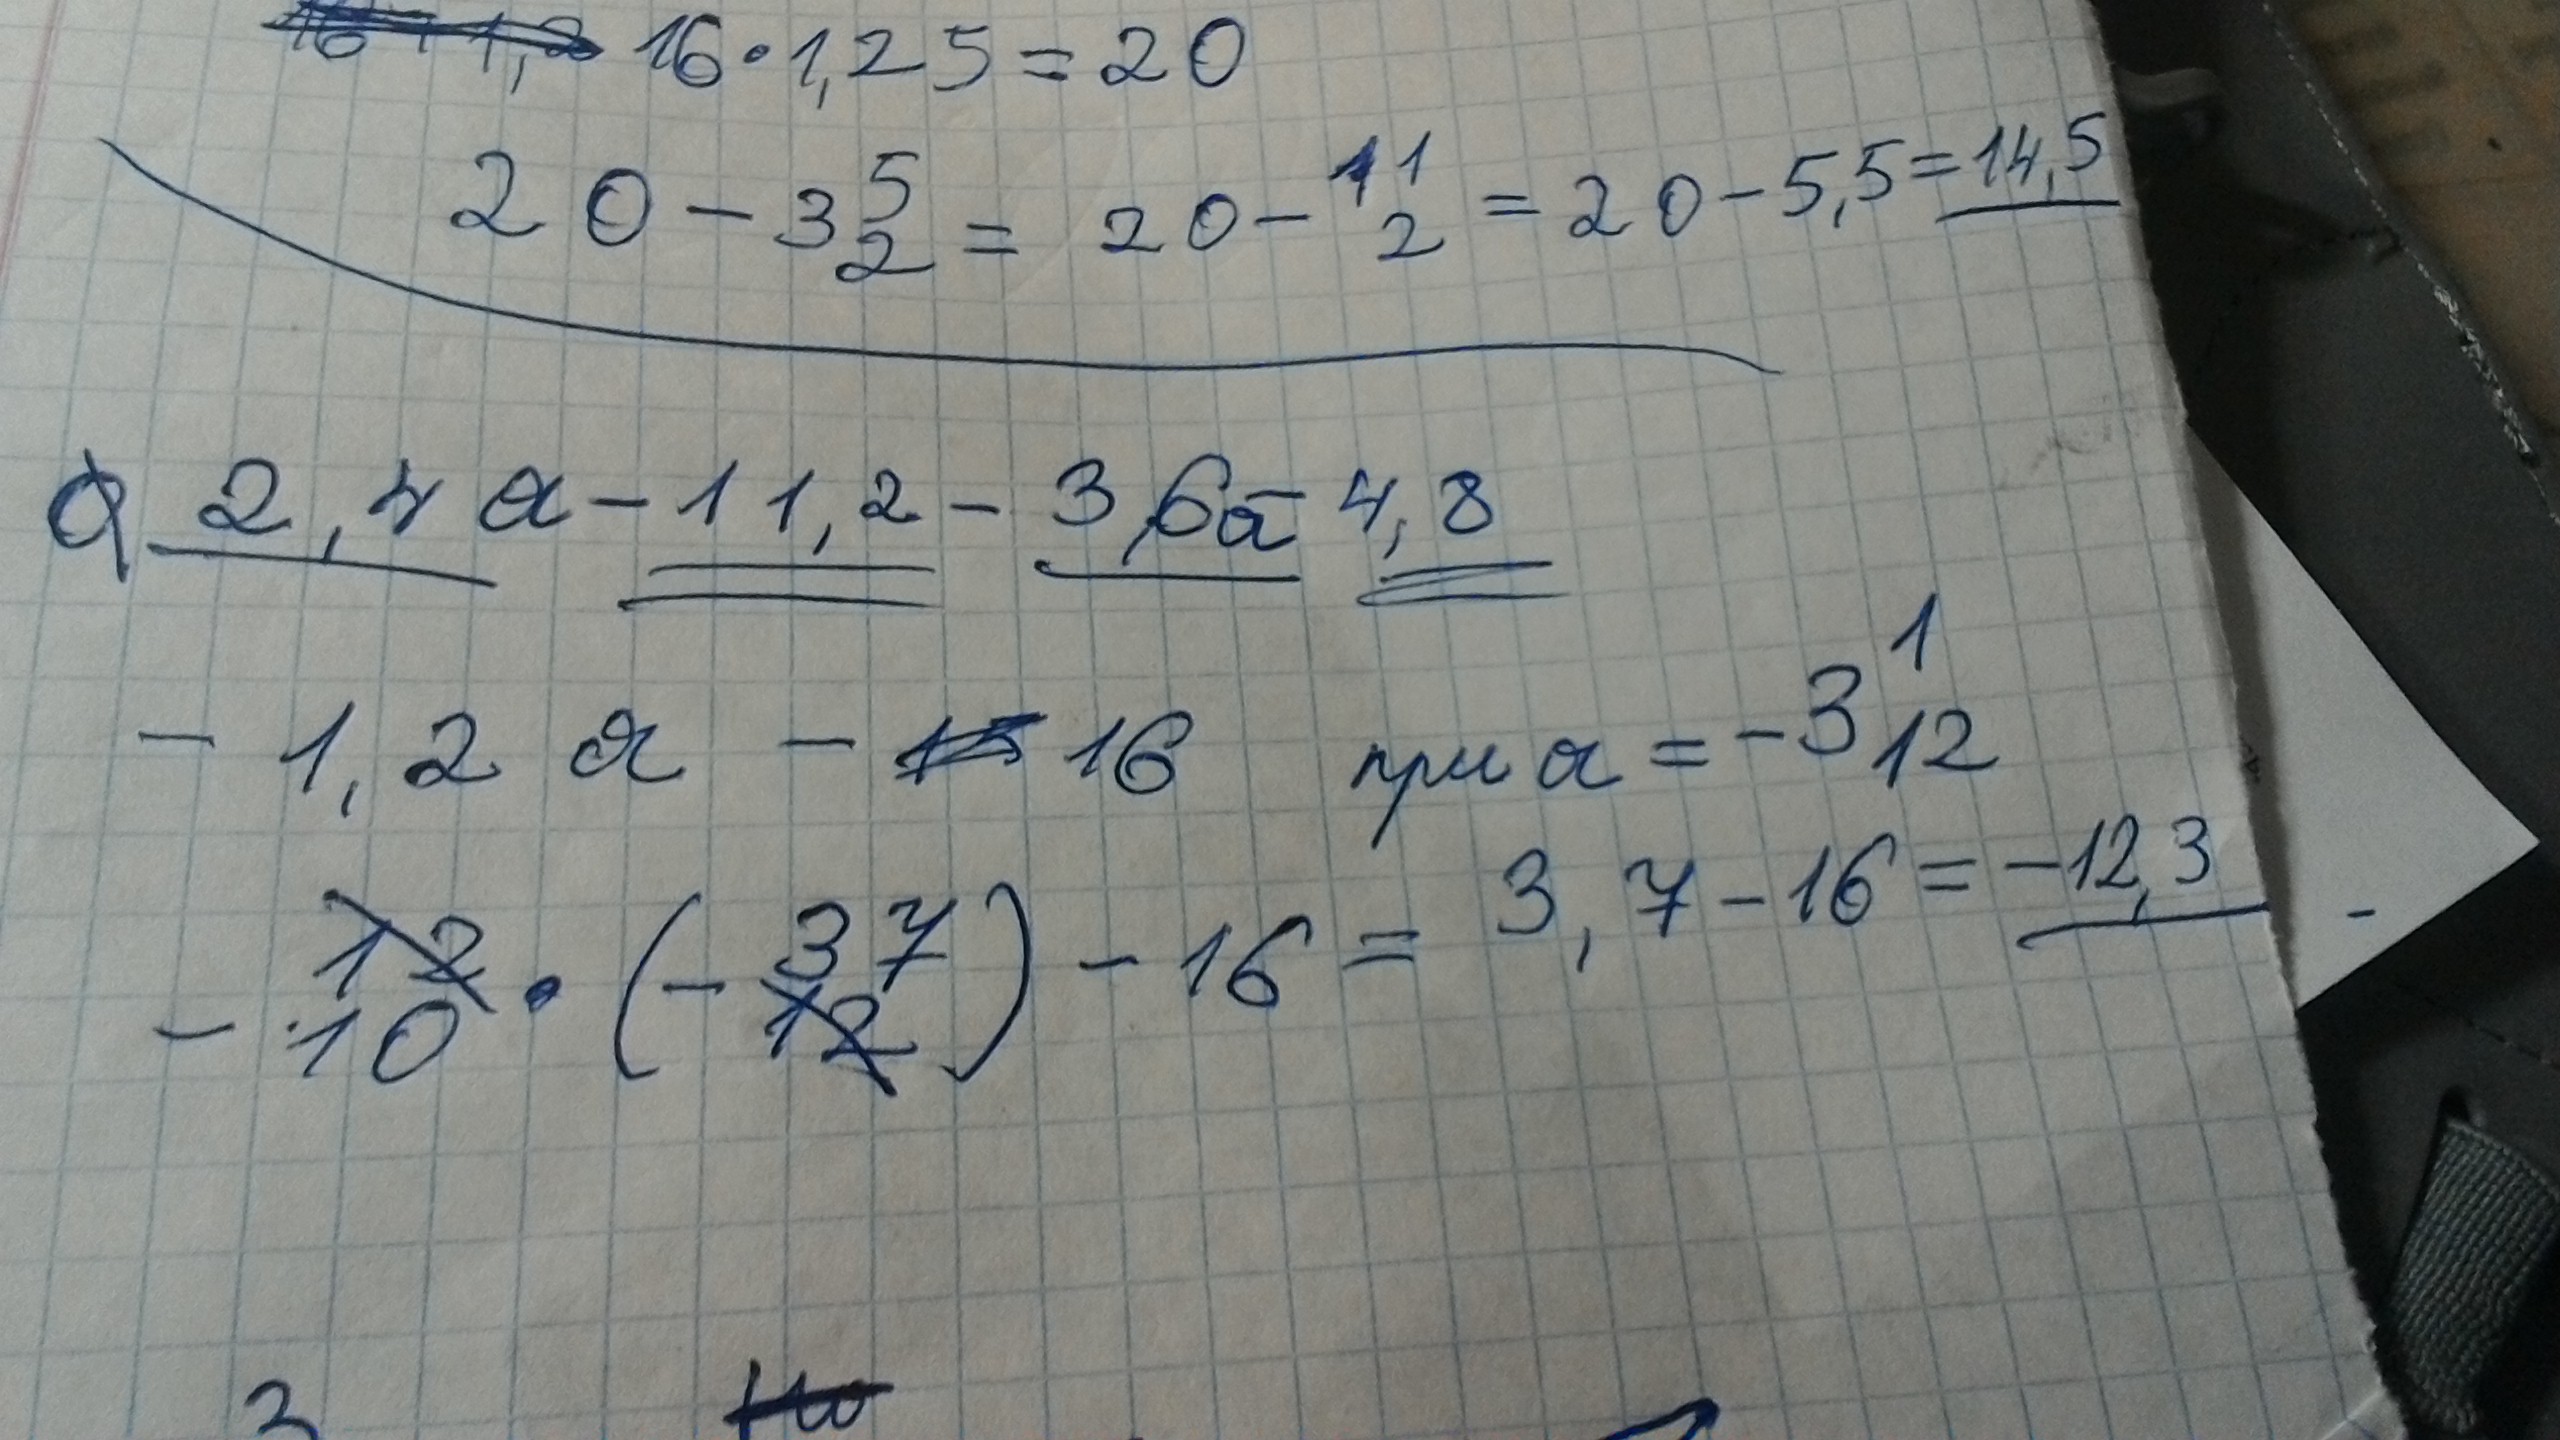 16·1,25=20
20-3 5/2=20-11/2=20-5,5=14,5
2,4a-11,2-3,6a-4,8
-1,2a-16 при a=-3 1/12
-12/10·(-37/12)-16=3,7-16=-12,3